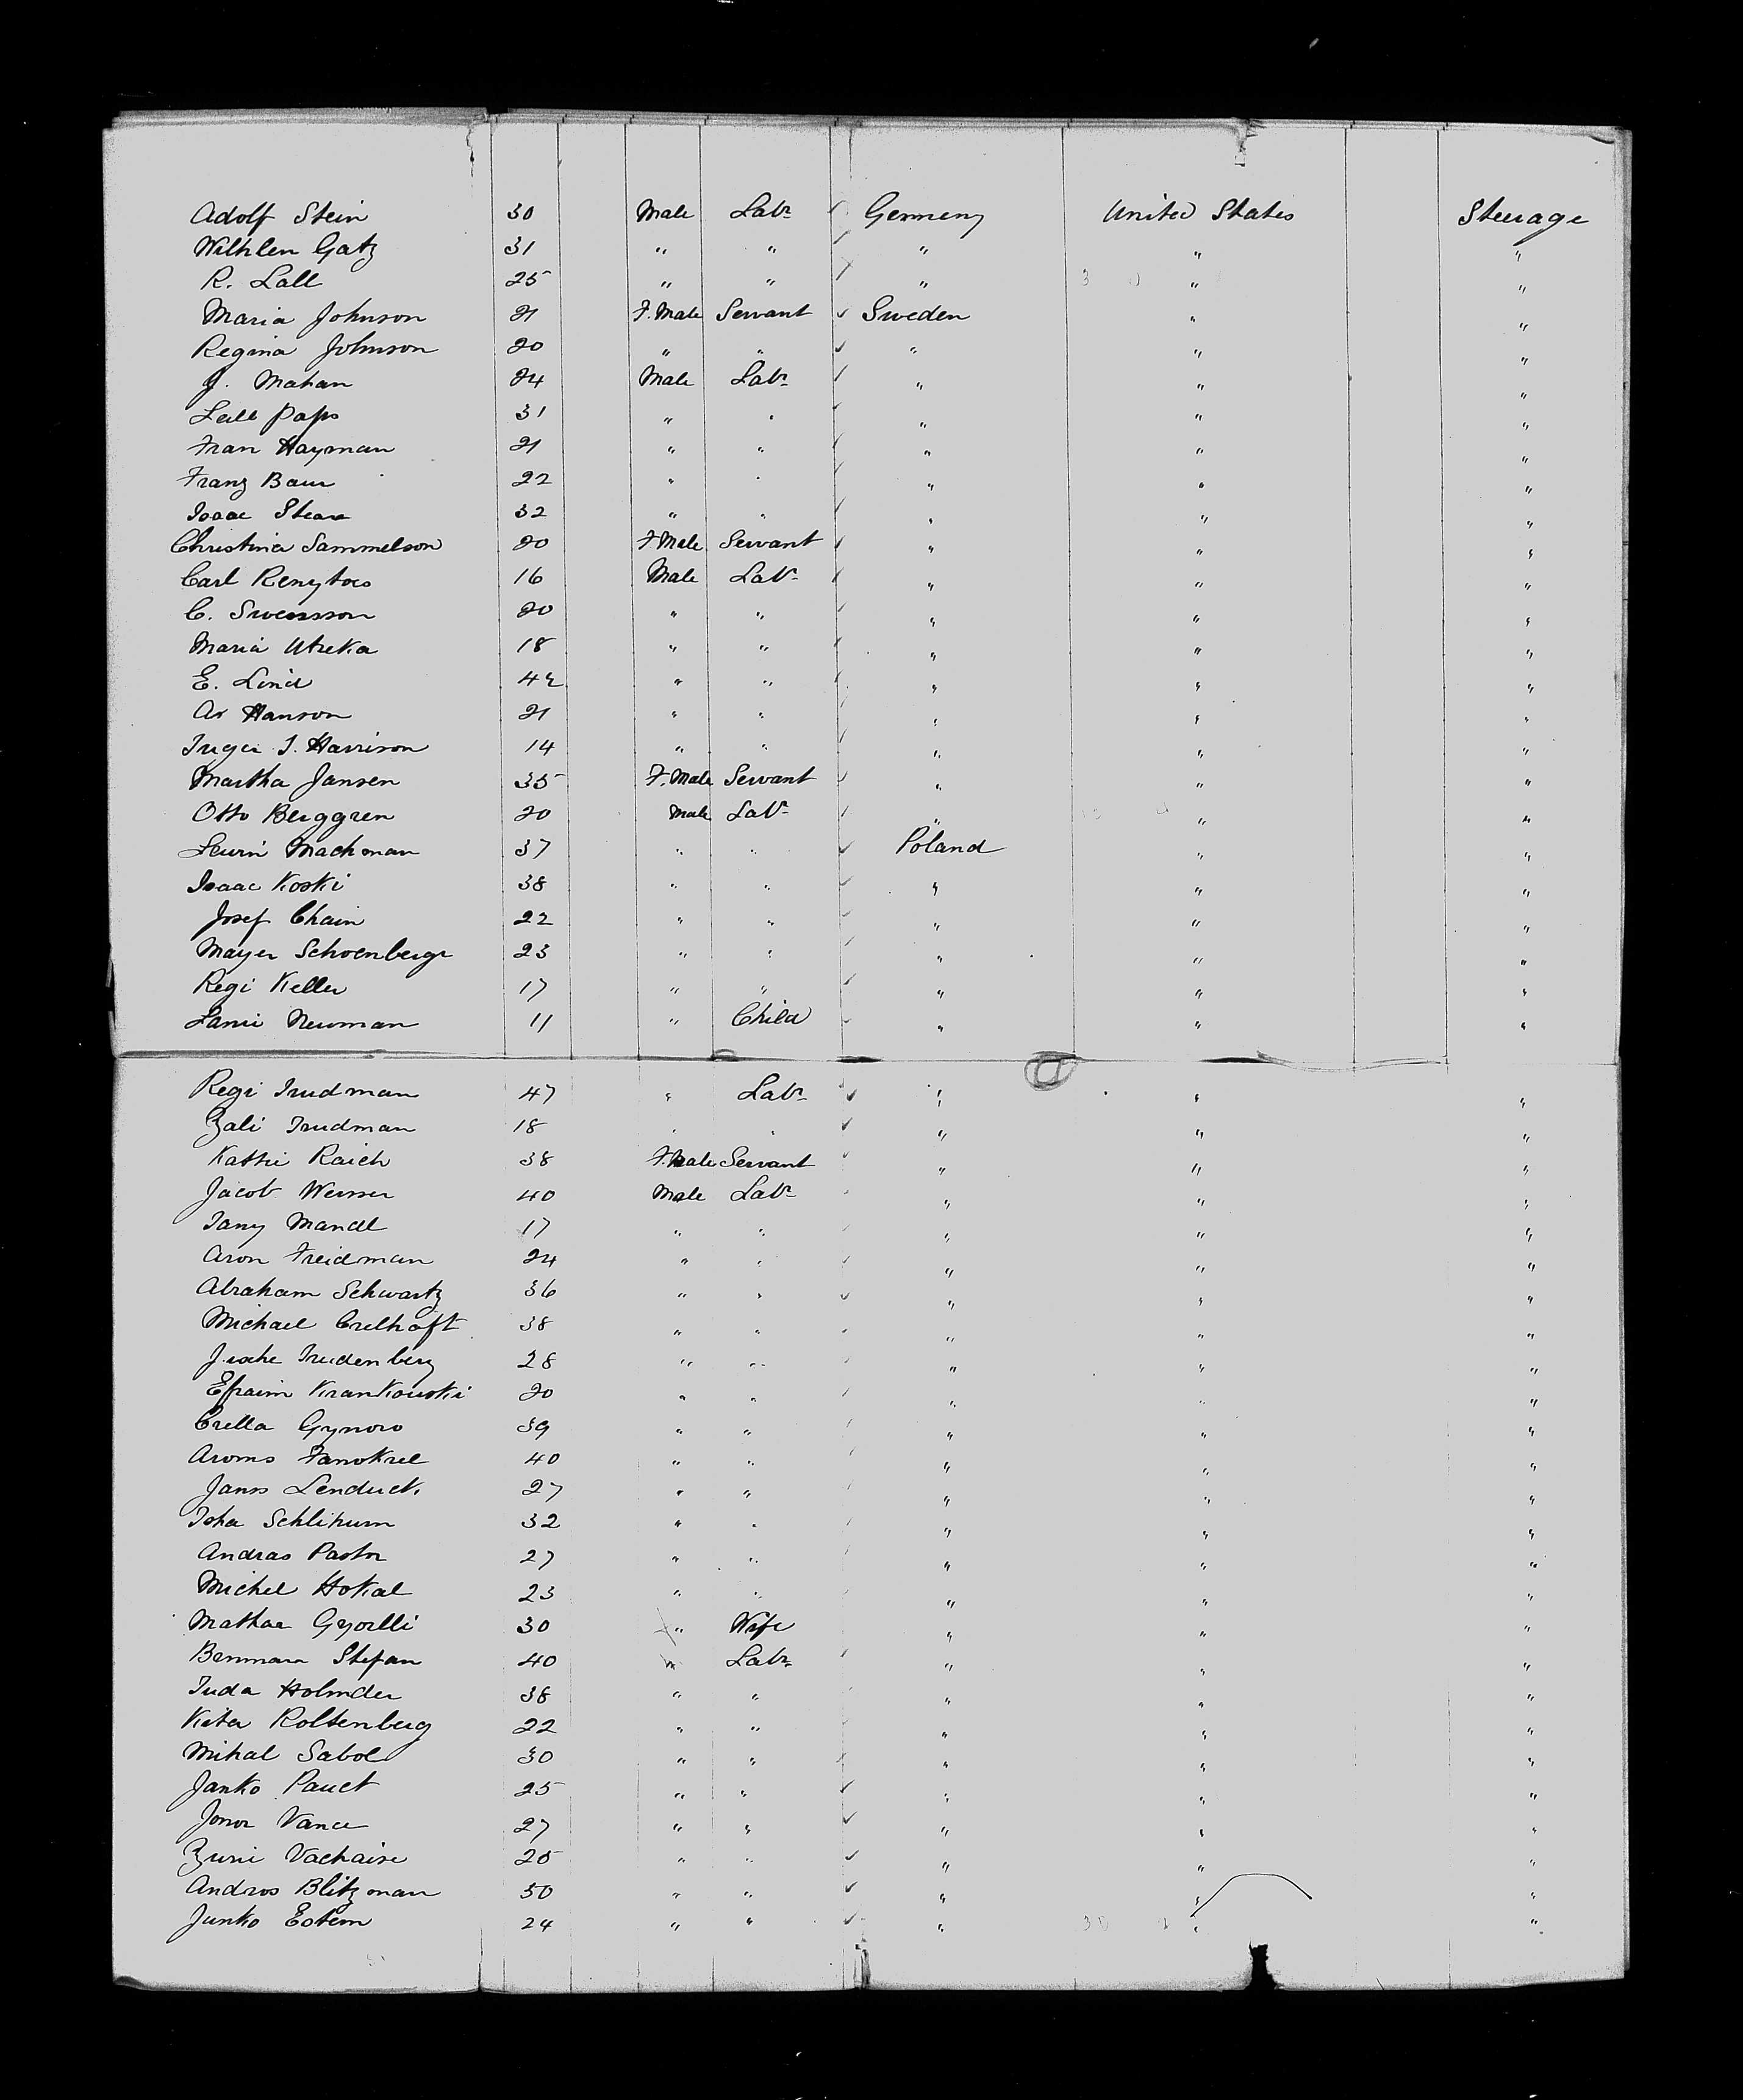 Adolf Stein 30 Male Labr Germeny United States Steerage
Wilhlen Gatz 31 " " " " "
R. Lall 25 " " " " "
Maria Johnson 21 F.Male Servant Sweden " "
Regina Johnson 20 " " " " "
J. Mahan 24 Male Labr " " "
Leill Paps 31 " " " " "
Fran Hayman 21 " " " " "
Franz Baur 22 " " " " "
Isaac 32 " " " " "
Christina Sammelson 20 F Male Servant " " "
Carl 16 Male Labr " " "
C. Swensson 20 " " " " "
Maria Utreka 18 " " " " "
E. Lind 42 " " " " "
Ar Hanson 21 " " " " "
Inger I. Harrison 14 " " " " "
Martha Jansen 35 F.Male Servant " " "
Otto Berggren 20 Male Labr " " "
Lewin Machman 37 " " Poland " "
Isaac Koski 38 " " " " "
Josef Chain 22 " " " " "
Mayer Schoenbergr 23 " " " " "
Regi Keller 17 " " " " "
Fanni Newman 11 " Child " " "
Regi Trudman 47 " Labr " " "
Zali Trudman 18 " " " " "
Kathi Raich 38 F.Male Servant " " "
Jacob Werner 40 Male Labr " " "
Tany Mandl 17 " " " " "
Aron Freidman 24 " " " " "
Abraham Schwartz 36 " " " " "
Michael Crelhaft 38 " " " " "
Trudenberg 28 " " " " "
Efraim Krankouski 20 " " " " "
Crella Gynoro 39 " " " " "
Aroms 40 " " " " "
Janos Lenduck 27 " " " " "
Schlihum 32 " " " " "
Andras Pastor 27 " " " " "
Michel Hokal 23 " " " " "
Mathae Gyorlli 30 " Wife " " "
Benmann Stefan 40 " Labr " " "
Juda Holmder 38 " " " " "
Kita Roltenberg 22 " " " " "
Mihal Sabol 30 " " " " "
Janko Pauct 25 " " " " "
Vance 27 " " " " "
Zuni Vachaise 25 " " " " "
Andros Blitzman 50 " " " " "
Junko Estem 24 " " " " "